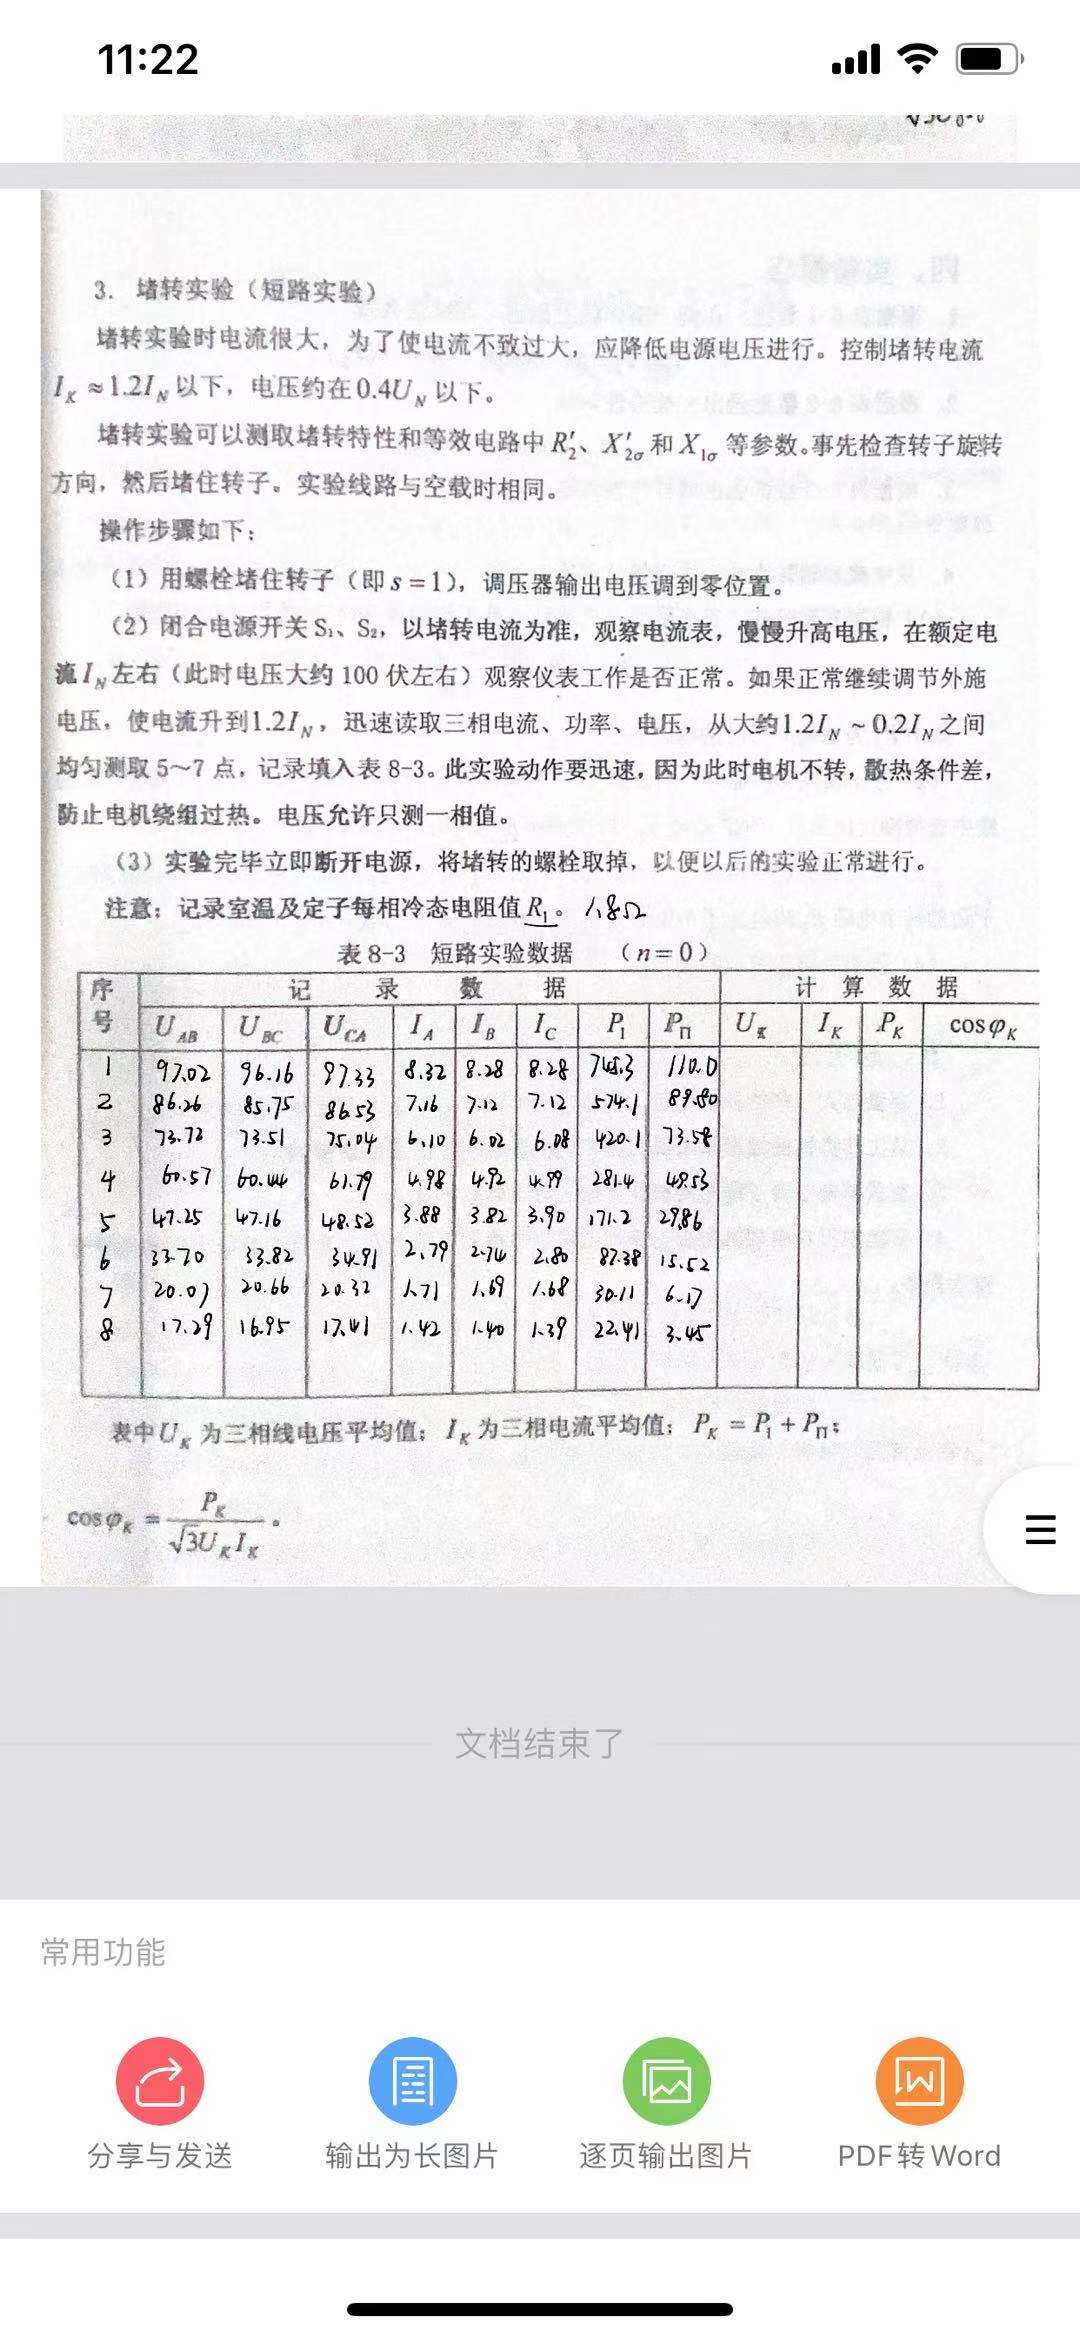 11:22
3. 堵转实验（短路实验）
堵转实验时电流很大，为了使电流不致过大，应降低电源电压进行。控制堵转电流
I_K≈1.2I_N以下，电压约在0.4U_N以下。
堵转实验可以测取堵转特性和等效电路中R′₂、X′₂σ和X₁σ等参数。事先检查转子旋转
方向，然后堵住转子。实验线路与空载时相同。
操作步骤如下：
（1）用螺栓堵住转子（即s=1），调压器输出电压调到零位置。
（2）闭合电源开关S₁、S₂，以堵转电流为准，观察电流表，慢慢升高电压，在额定电
流I_N左右（此时电压大约100伏左右）观察仪表工作是否正常。如果正常继续调节外施
电压，使电流升到1.2I_N，迅速读取三相电流、功率、电压，从大约1.2I_N~0.2I_N之间
均匀测取5～7点，记录填入表8-3。此实验动作要迅速，因为此时电机不转，散热条件差，
防止电机绕组过热。电压允许只测一相值。
（3）实验完毕立即断开电源，将堵转的螺栓取掉，以便以后的实验正常进行。
注意：记录室温及定子每相冷态电阻值R₁。1.8Ω
表8-3 短路实验数据 （n=0）
序号 记录数据 计算数据
U_AB U_BC U_CA I_A I_B I_C P_I P_II U_K I_K P_K cosφ_K
1 97.02 96.16 97.33 8.32 8.28 8.28 745.3 110.0
2 86.26 85.75 86.53 7.16 7.12 7.12 574.1 89.80
3 73.72 73.51 75.04 6.10 6.02 6.08 420.1 73.58
4 60.57 60.44 61.79 4.98 4.92 4.99 281.4 49.53
5 47.25 47.16 48.52 3.88 3.82 3.90 171.2 29.86
6 33.70 33.82 34.91 2.79 2.74 2.80 87.38 15.52
7 20.07 20.66 20.32 1.71 1.69 1.68 30.11 6.17
8 17.29 16.95 17.41 1.42 1.40 1.39 22.41 3.45
表中U_K为三相线电压平均值；I_K为三相电流平均值；P_K=P_I+P_II；
cosφ_K=P_K/√3U_KI_K。
文档结束了
常用功能
分享与发送 输出为长图片 逐页输出图片 PDF转Word